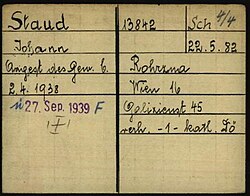 Staud
13842
Sch 4/4
Johann
22. 5. 82
Angest des Gen. C.
Rohrzna
2. 4. 1938
Wien 16
ü 27. Sep. 1939 F
45
I
verh. -1- kath. Dö